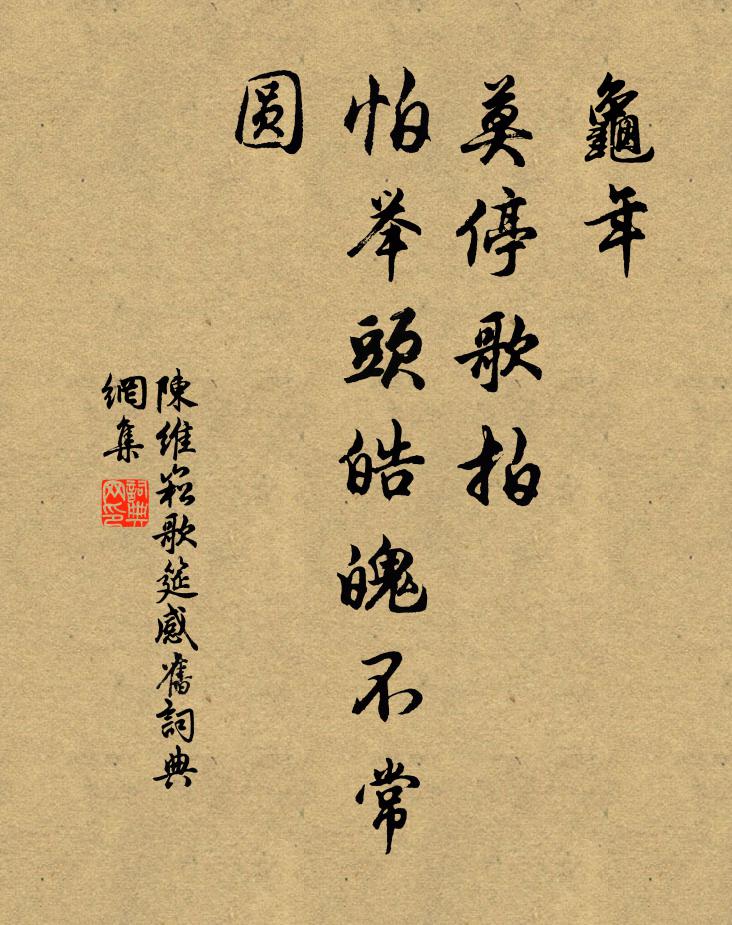 龜年
莫停歌拍
怕举頭皓魄不常
圆
陳維崧歌筵感舊詞典
網集
詞典
网印